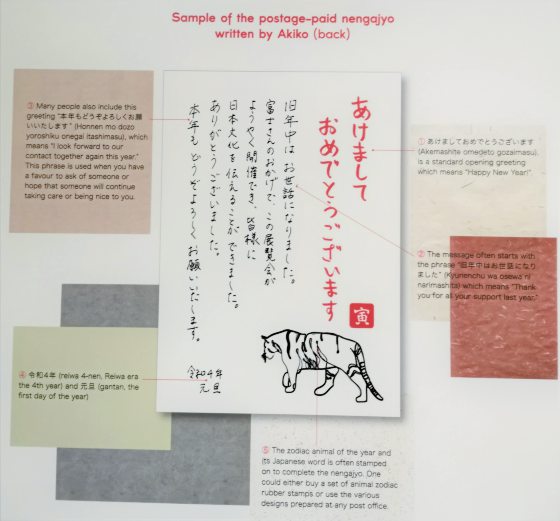 Sample of the postage-paid nengajyo
written by Akiko (back)
③ Many people also include this
greeting “本年もどうぞよろしくお願
いいたします” (Honnen mo dozo
yoroshiku onegai itashimasu), which
means “I look forward to our
contact together again this year.”
This phrase is used when you have
a favour to ask of someone or
hope that someone will continue
taking care or being nice to you.
あけまして
おめでとうございます
寅
旧年中は お世話になりました。
富士さんのおかげで、この展覧会が
ようやく開催でき、皆様に
日本文化を伝えることができました。
ありがとうございました。
本年も どうぞよろしく お願いいたします。
令和4年
元旦
① あけましておめでとうございます
(Akemashite omedeto gozaimasu),
is a standard opening greeting
which means “Happy New Year!”
② The message often starts with
the phrase “旧年中はお世話になり
ました” (Kyunenchu wa osewa ni
narimashita) which means “Thank
you for all your support last year.”
④ 令和4年 (reiwa 4-nen, Reiwa era
the 4th year) and 元旦 (gantan, the
first day of the year)
⑤ The zodiac animal of the year and
its Japanese word is often stamped
on to complete the nengajyo. One
could either buy a set of animal zodiac
rubber stamps or use the various
designs prepared at any post office.